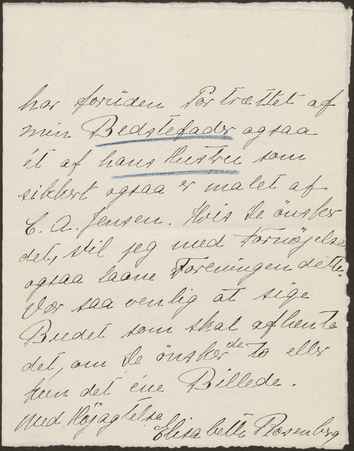 har foruden Portrættet af
min Bedstefader ogsaa
ét af hans Hustru som
sikkert ogsaa er malet af
C. A. Jensen. Hvis De ønsker
det, vil jeg med Fornøjelse
ogsaa laane Foreningen dette.
Vær saa venlig at sige
Budet som skal afhente
det, om De ønsker de to eller
kun det éne Billede.
Med Højagtelse
Elisabeth Rosenberg